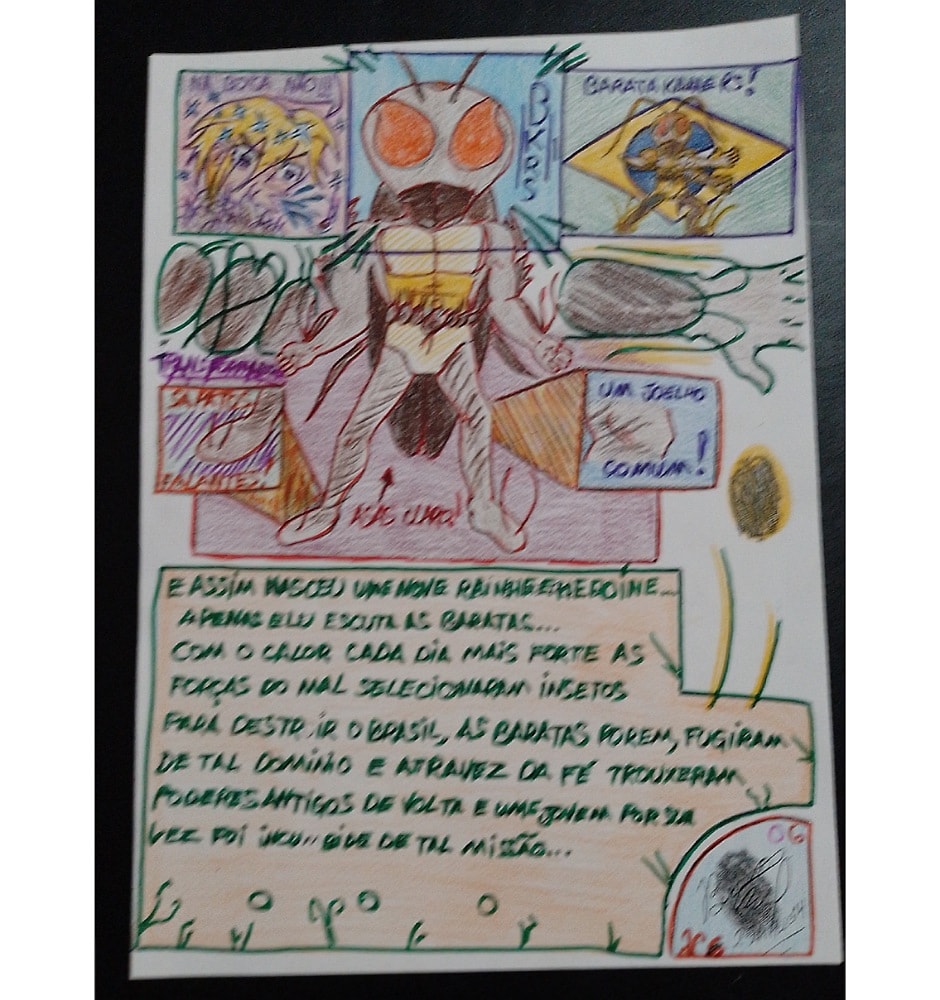 NA BOCA NÃO!!!
BARATA KAMERS!
SAPATOS
FALANTES!
UM JOELHO
COMUM!
ASAS CLARO!
E ASSIM NASCEU UME NOVE RAINHE E HEROÍNE...
APENAS ELU ESCUTA AS BARATAS...
COM O CALOR CADA DIA MAIS FORTE AS
FORÇAS DO MAL SELECIONARAM INSETOS
PARA DESTRUIR O BRASIL, AS BARATAS POREM, FUGIRAM
DE TAL DOMÍNIO E ATRAVEZ DA FÉ TROUXERAM
PODERES ANTIGOS DE VOLTA E UME JOVEM POR SUA
VEZ FOI DE TAL MISSÃO...
06